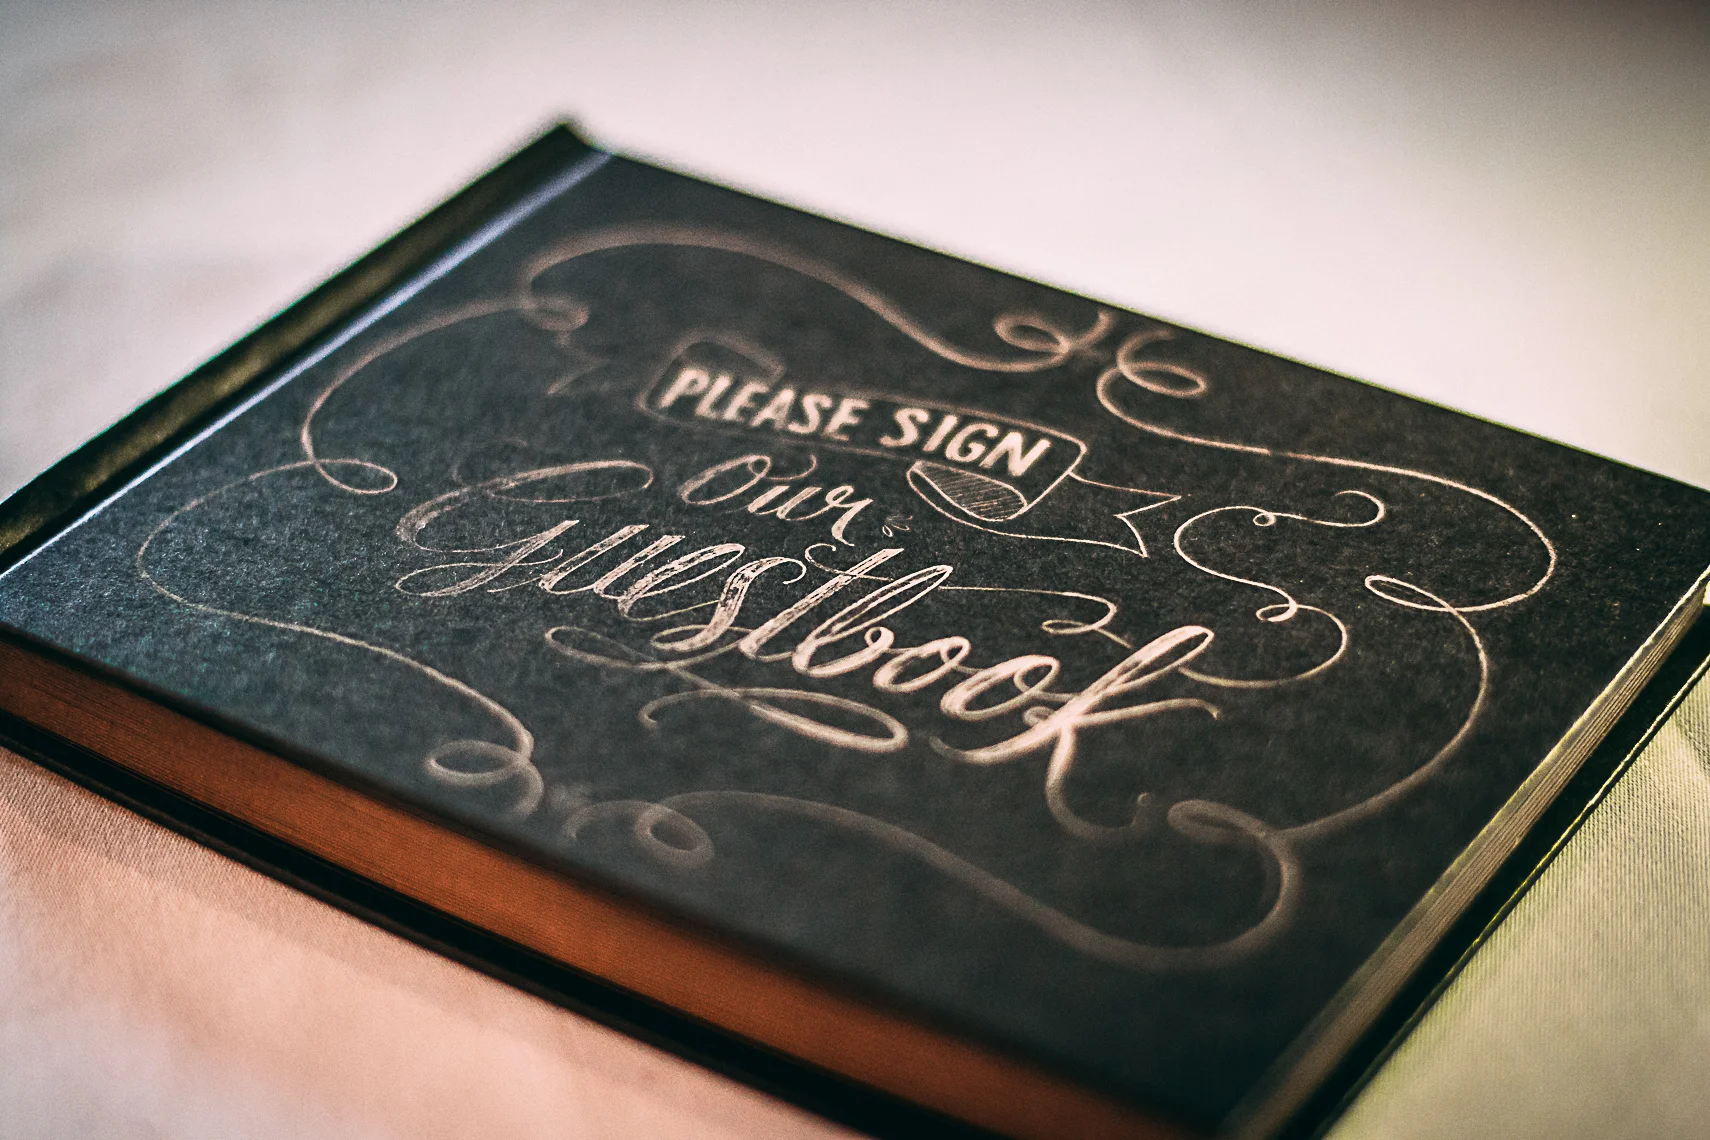 PLEASE SIGN
Our
Guestbook